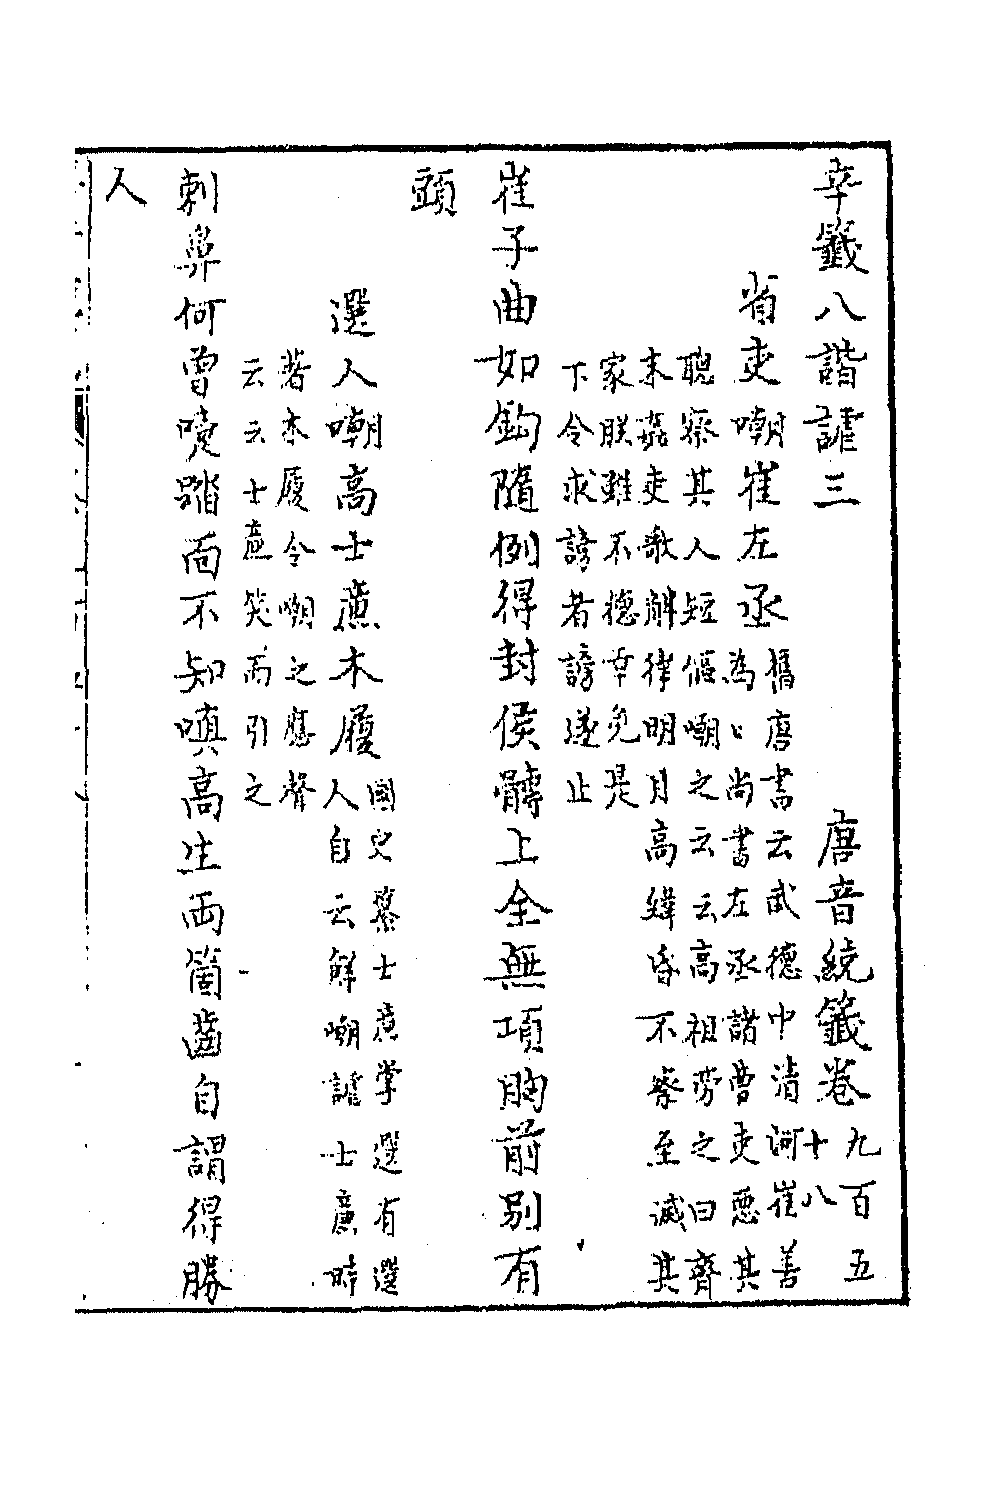 辛籤八諧謔三　唐音統籤卷九百五十八
省吏嘲崔左丞 舊唐書云武德中清河崔善為口尚書左丞諸曹吏惡其
聰察其人短傴嘲之云云高祖勞之曰齊
末姦吏歌斛律明月高緯昏不察至滅其
家朕雖不德幸免是
下令求謗者謗遂止
崔子曲如鈎隨例得封侯髆上全無項胸前別有
頭
選人嘲高士廉木履 國史纂士廉掌選有選人自云解嘲謔士廉時
著木履令嘲之應聲
云云士廉笑而引之
刺鼻何曾嚏踏面不知嗔高生兩箇齒自謂得勝
人